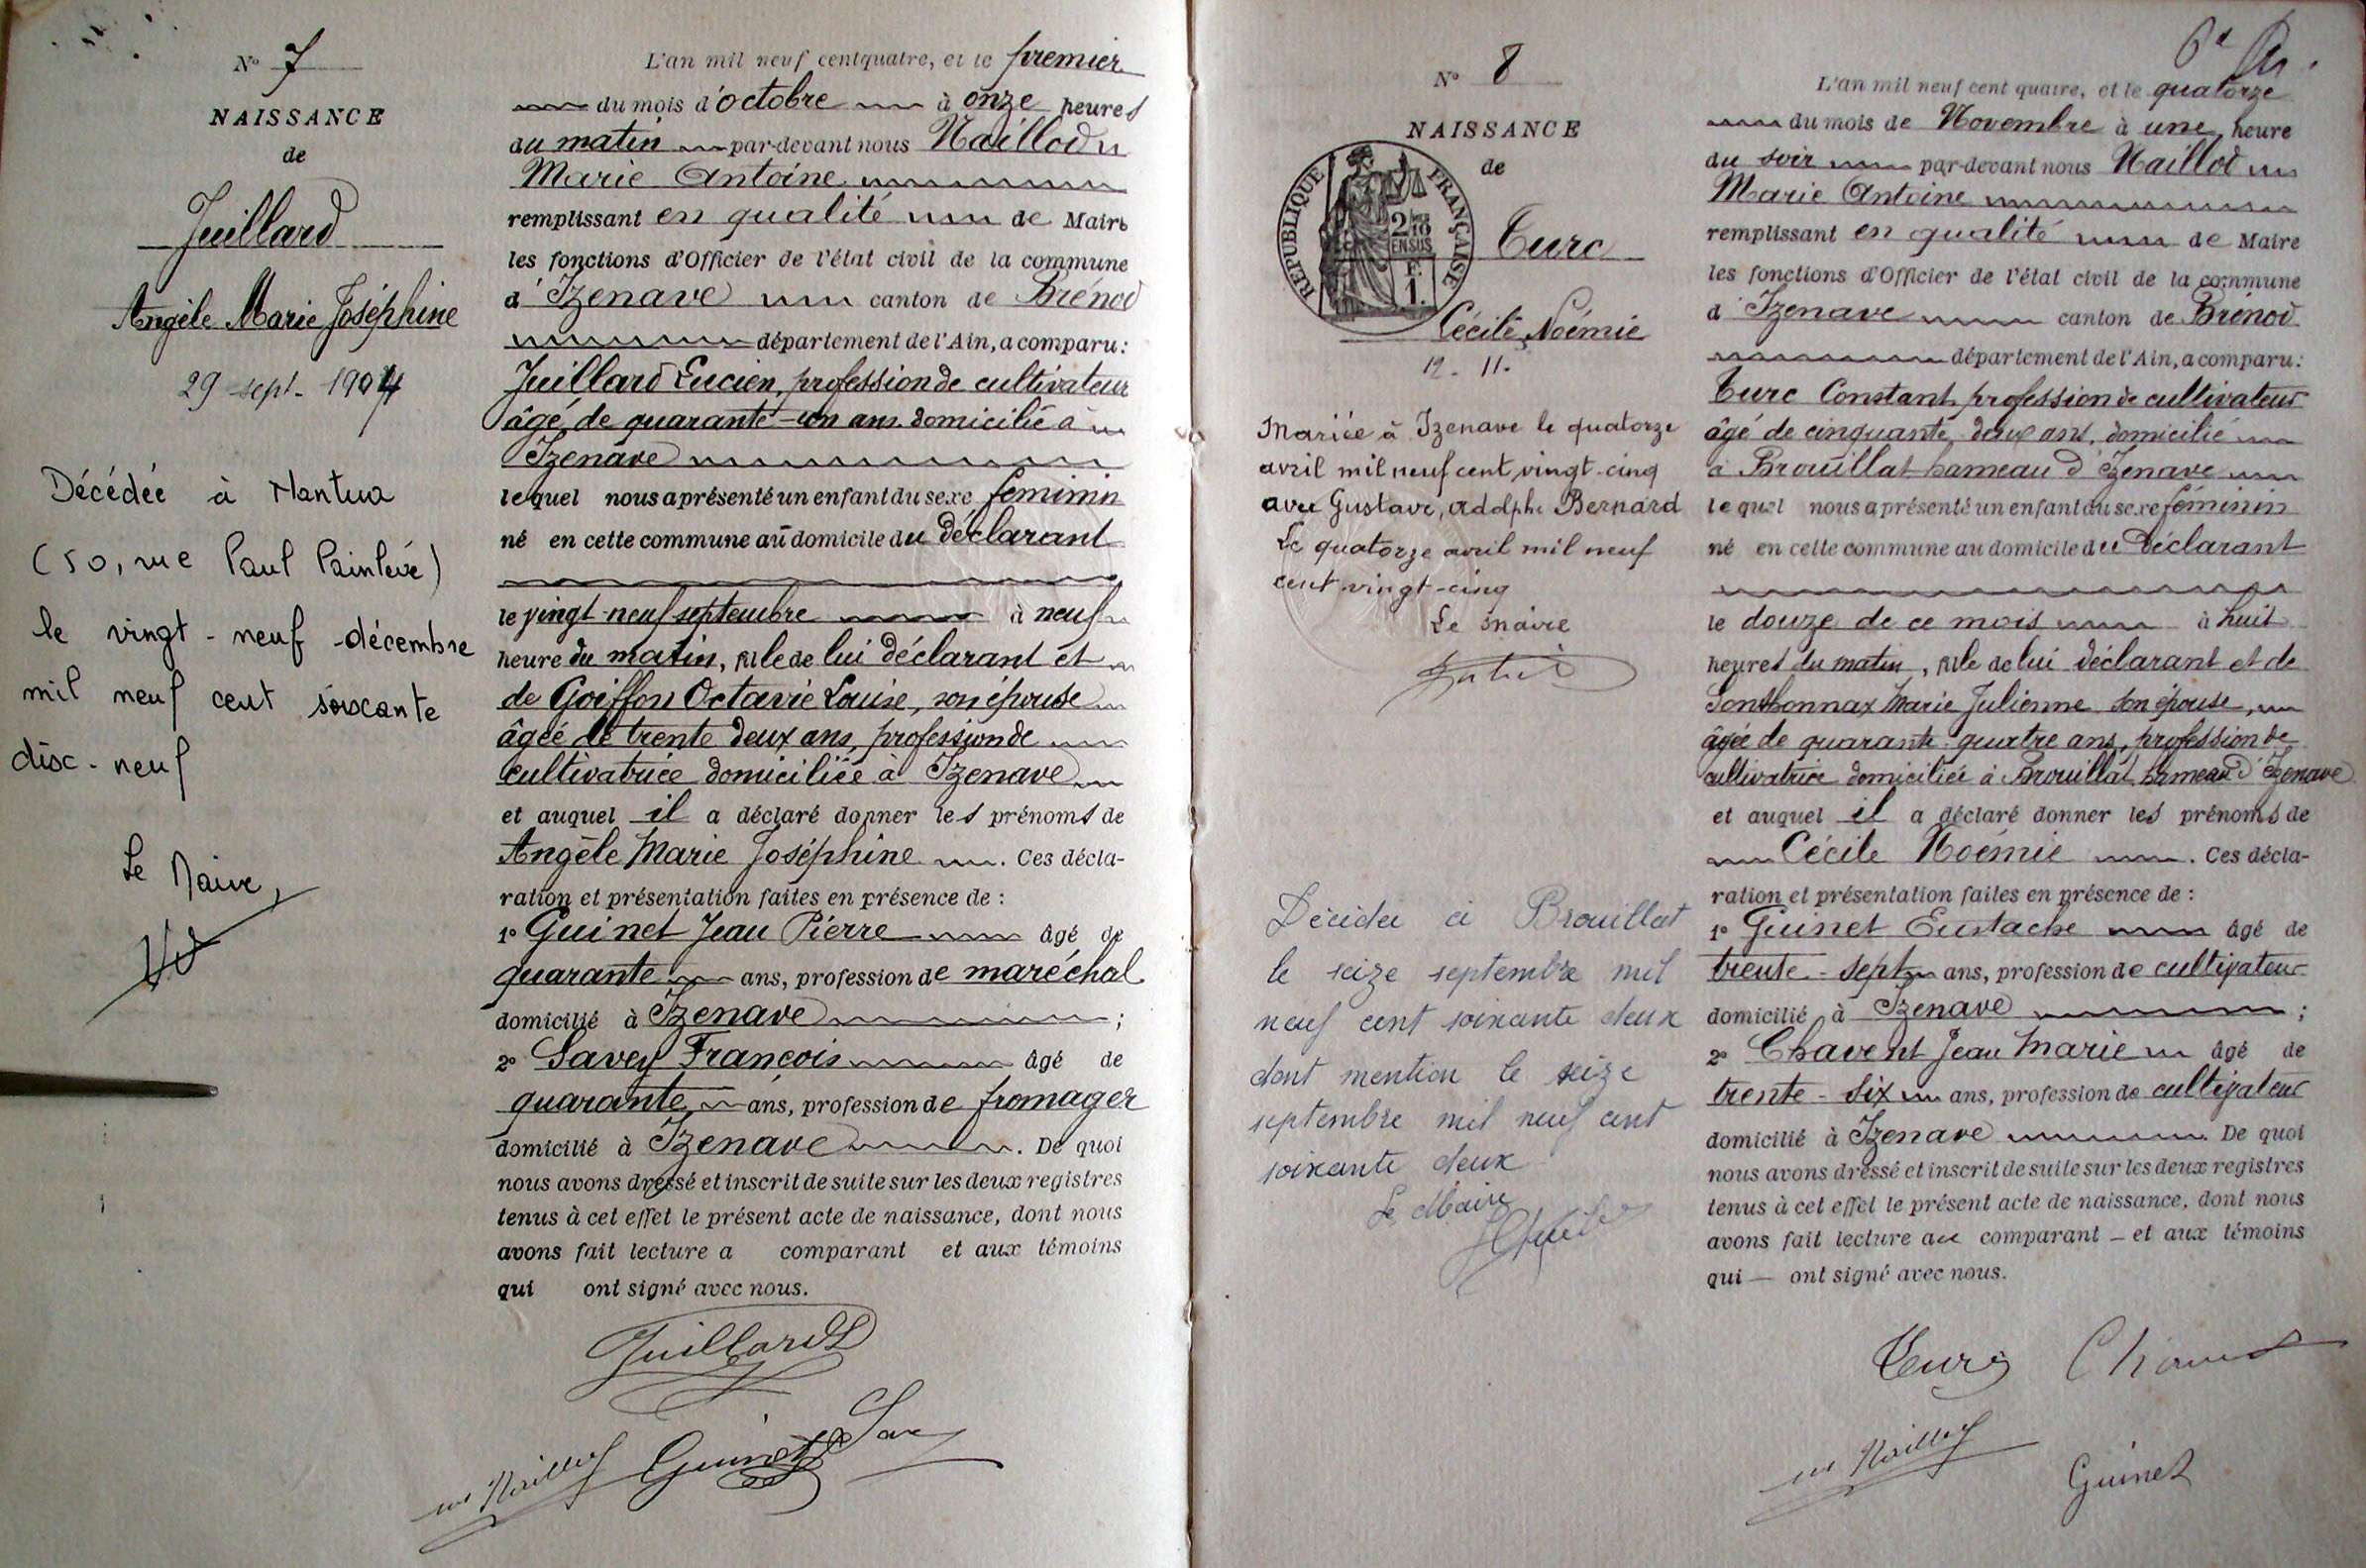 N° 7
NAISSANCE
de
Juillard
Angèle Marie Joséphine
29 sept. 1904
Décédée à Nantua
(50, rue Paul Painlevé)
le vingt-neuf décembre
mil neuf cent soixante
dix-neuf
Le Maire,
L'an mil neuf cent quatre, et le premier
du mois d'octobre à onze heures
du matin par-devant nous Naillod
Marie Antoine
remplissant en qualité de Maire
les fonctions d'Officier de l'état civil de la commune
d'Izenave canton de Brénod
département de l'Ain, a comparu:
Juillard Lucien, profession de cultivateur
âgé de quarante-un ans domicilié à
Izenave
lequel nous a présenté un enfant du sexe féminin
né en cette commune au domicile du déclarant
le vingt-neuf septembre à neuf
heure du matin, fille de lui déclarant et
de Goiffon Octavie Louise, son épouse
âgée de trente deux ans, profession de
cultivatrice domiciliée à Izenave
et auquel il a déclaré donner les prénoms de
Angèle Marie Joséphine. Ces décla-
ration et présentation faites en présence de :
1° Guinet Jean Pierre âgé de
quarante ans, profession de maréchal
domicilié à Izenave ;
2° Savey François âgé de
quarante ans, profession de fromager
domicilié à Izenave. De quoi
nous avons dressé et inscrit de suite sur les deux registres
tenus à cet effet le présent acte de naissance, dont nous
avons fait lecture a comparant et aux témoins
qui ont signé avec nous.
Juillard L
Guinet
N° 8
NAISSANCE
de
RÉPUBLIQUE FRANÇAISE
2/10
EN SUS
F.
1.
Turc
Cécile, Noémie
12. 11.
Mariée à Izenave le quatorze
avril mil neuf cent vingt-cinq
avec Gustave, Adolphe Bernard
Le quatorze avril mil neuf
cent vingt-cinq
Le Maire
Décédée à Brouillat
le seize septembre mil
neuf cent soixante deux
dont mention le seize
septembre mil neuf cent
soixante deux
Le Maire
L'an mil neuf cent quatre, et le quatorze
du mois de Novembre à une heure
du soir par-devant nous Naillod
Marie Antoine
remplissant en qualité de Maire
les fonctions d'Officier de l'état civil de la commune
d'Izenave canton de Brénod
département de l'Ain, a comparu:
Turc Constant, profession de cultivateur
âgé de cinquante deux ans, domicilié
à Brouillat hameau d'Izenave
lequel nous a présenté un enfant du sexe féminin
né en cette commune au domicile du Déclarant
le douze de ce mois à huit
heures du matin, fille de lui déclarant et de
Sonthonnax Marie Julienne son épouse,
âgée de quarante-quatre ans, profession de
cultivatrice domiciliée à Brouillat hameau d'Izenave
et auquel il a déclaré donner les prénoms de
Cécile Noémie. Ces décla-
ration et présentation faites en présence de :
1° Guinet Eustache âgé de
trente-sept ans, profession de cultivateur
domicilié à Izenave ;
2° Chavent Jean Marie âgé de
trente-six ans, profession de cultivateur
domicilié à Izenave. De quoi
nous avons dressé et inscrit de suite sur les deux registres
tenus à cet effet le présent acte de naissance, dont nous
avons fait lecture au comparant — et aux témoins
qui — ont signé avec nous.
Turc Chavent
Guinet